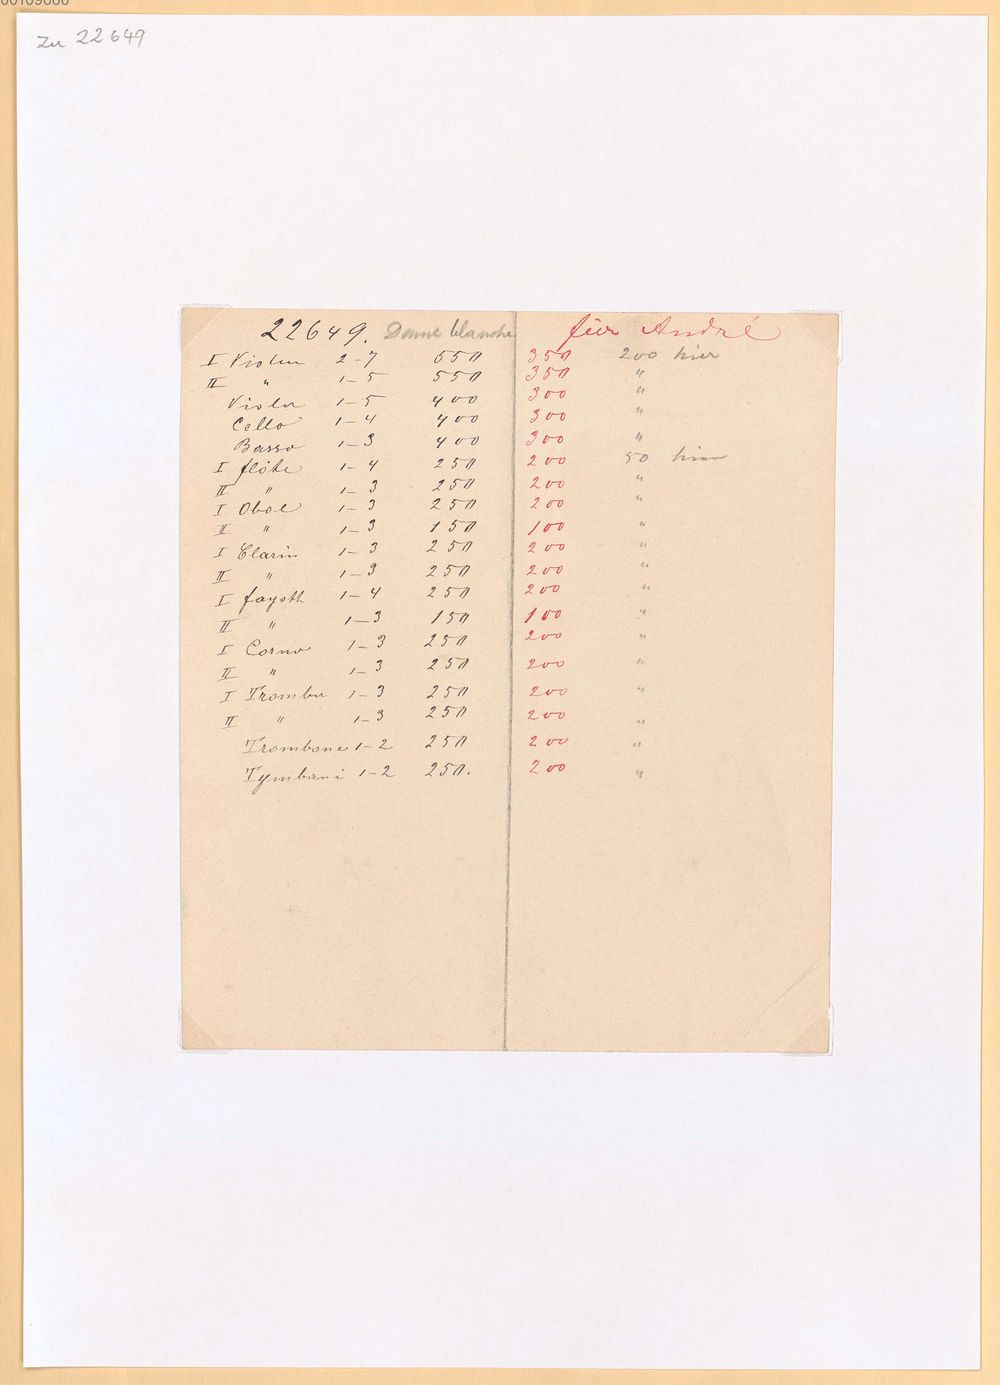 00109060
Zu 22649
22649. Dame blanche für André
I Violin 2-7 550 350 200 hier
II " 1-5 550 350 "
Viola 1-5 400 300 "
Cello 1-4 400 300 "
Basso 1-3 400 300 "
I flöte 1-4 250 200 50 hier
II " 1-3 250 200 "
I Oboe 1-3 250 200 "
II " 1-3 150 100 "
I Clarin 1-3 250 200 "
II " 1-3 250 200 "
I fagott 1-4 250 200 "
II " 1-3 150 100 "
I Corno 1-3 250 200 "
II " 1-3 250 200 "
I Tromba 1-3 250 200 "
II " 1-3 250 200 "
Trombone 1-2 250 200 "
Tympani 1-2 250. 200 "